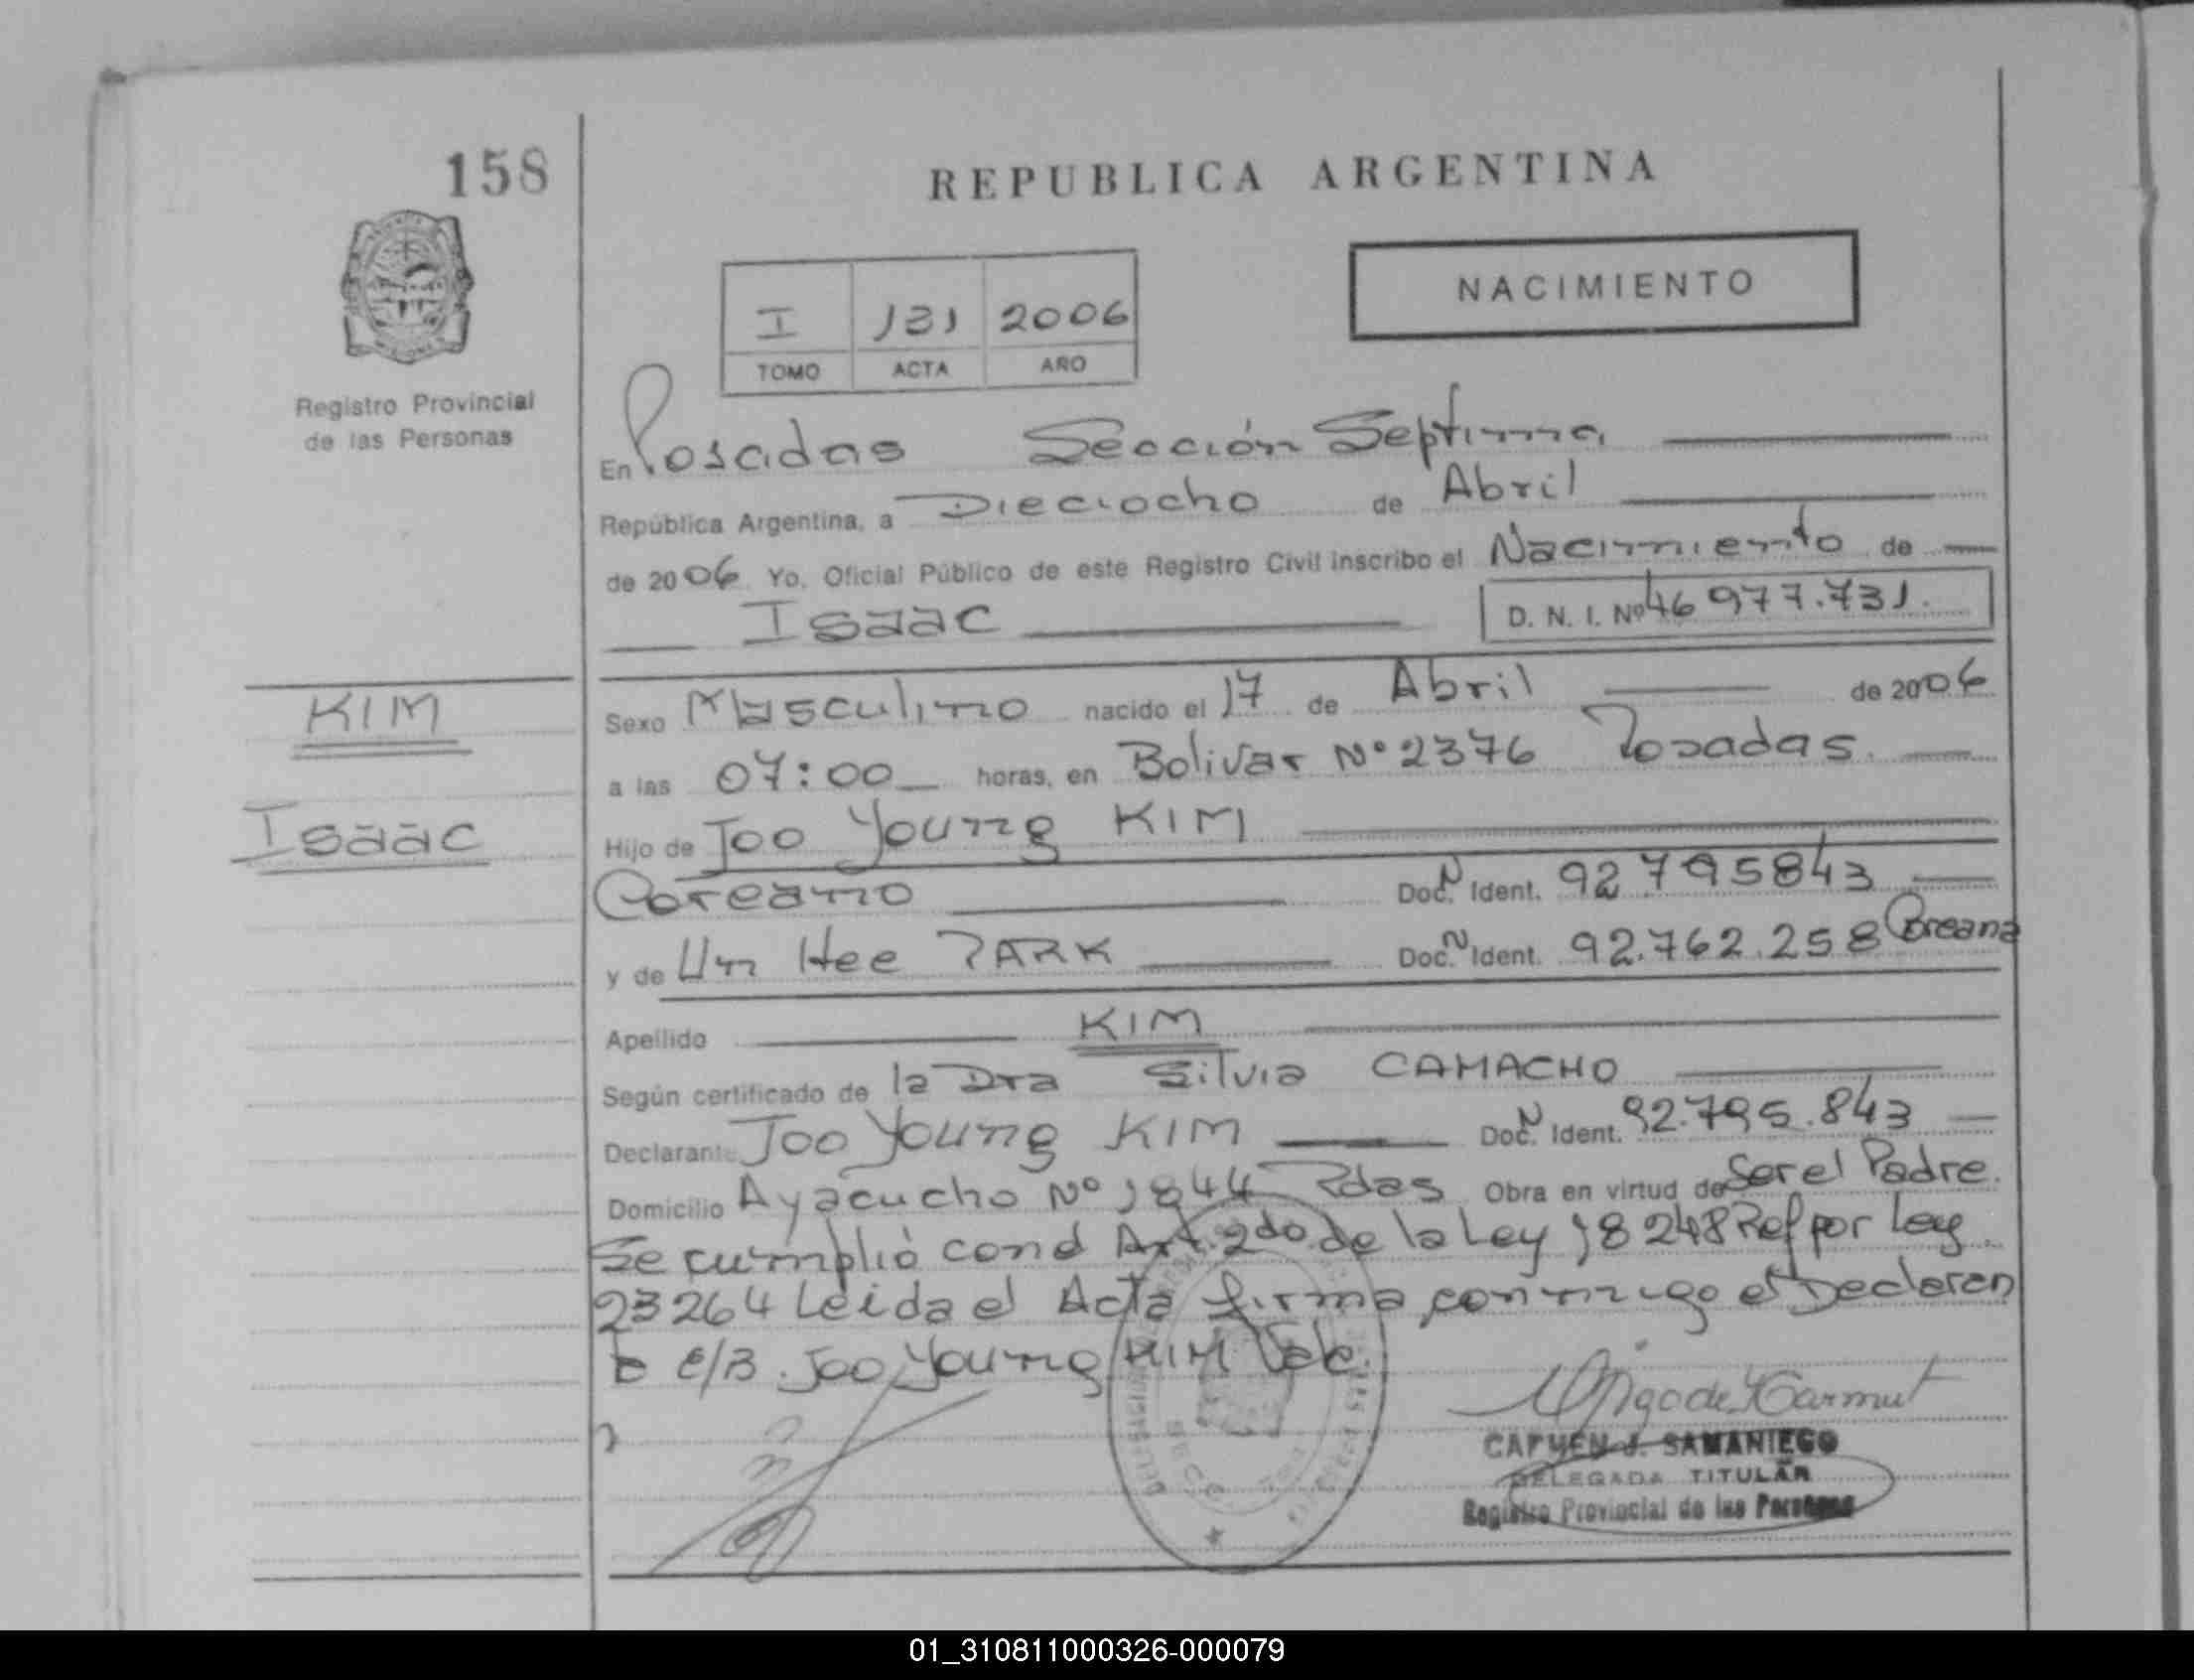 158
REPUBLICA ARGENTINA
NACIMIENTO
I 131 2006
TOMO ACTA AÑO
Registro Provincial
de las Personas
En Posadas Sección Septima
República Argentina, a Dieciocho de Abril
de 2006 Yo, Oficial Público de este Registro Civil inscribo el Nacimiento de
Isaac D. N. I. Nº 46 977.731.
KIM
Isaac
Sexo Masculino nacido el 17 de Abril de 2006
a las 07:00 horas, en Bolivar Nº 2376 Posadas.
Hijo de Joo Young KIM
Coreano Doc. N Ident. 92 795843
y de Un Hee PARK Doc. N Ident. 92.762.258 Coreana
Apellido KIM
Según certificado de la Dra Silvia CAMACHO
Declarante Joo Young KIM Doc. N Ident. 92.795.843
Domicilio Ayacucho Nº 1844 Pdas Obra en virtud de Ser el Padre.
Se cumplió con el Art. 2do. de la Ley 18248 Ref por Ley
23264 Leida el Acta firma conmigo el Declaran
te E/B. Joo Young KIM Vale.
CARMEN J. SAMANIEGO
DELEGADA TITULAR
Registro Provincial de las Personas
01_310811000326-000079